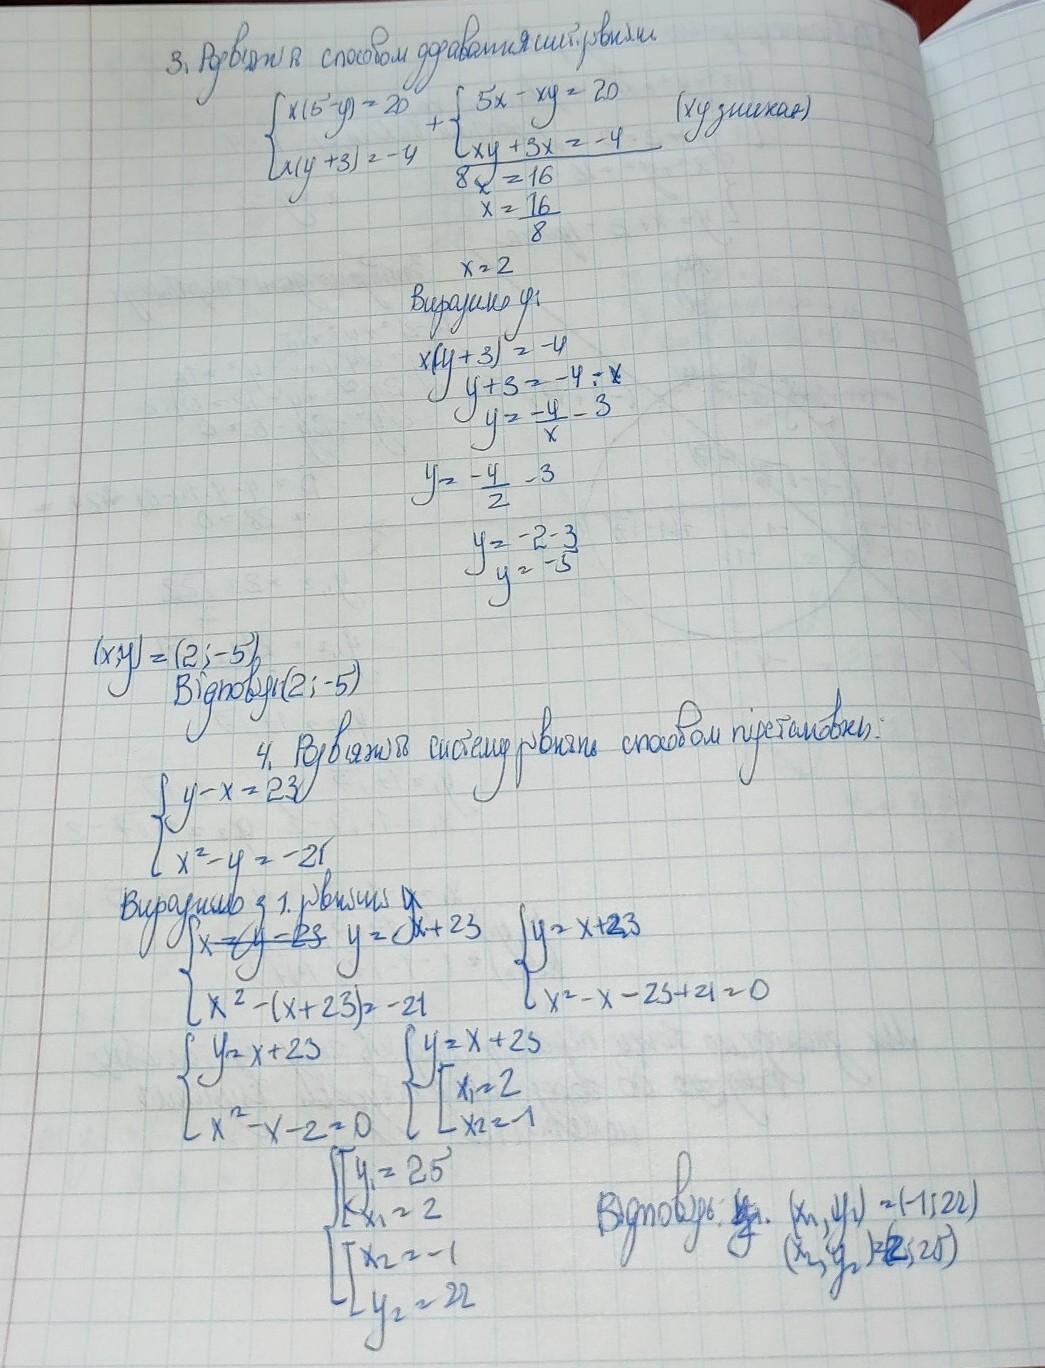 3. Розв'яжіть способом додавання сист. рівнянь
{ x(5-y) = 20 + { 5x - xy = 20 (xy зникає)
x(y+3) = -4 xy + 3x = -4
8x = 16
x = 16/8
x = 2
Виразимо y:
x(y+3) = -4
y+3 = -4 : x
y = -4/x - 3
y = -4/2 - 3
y = -2-3
y = -5
(x;y) = (2; -5)
Відповідь: (2; -5)
4. Розв'яжіть систему рівнянь способом підстановки:
{ y - x = 23
x² - y = -21
Виразимо з 1. рівняння y
{ y = x+23 { y = x+23
x² - (x+23) = -21 x² - x - 23 + 21 = 0
{ y = x+23 { y = x+23
x² - x - 2 = 0 [ x₁ = 2
x₂ = -1
[ { y₁ = 25
x₁ = 2
{ x₂ = -1
y₂ = 22
Відповідь: (x₁, y₁) = (-1; 22)
(x₂, y₂) = (2; 25)